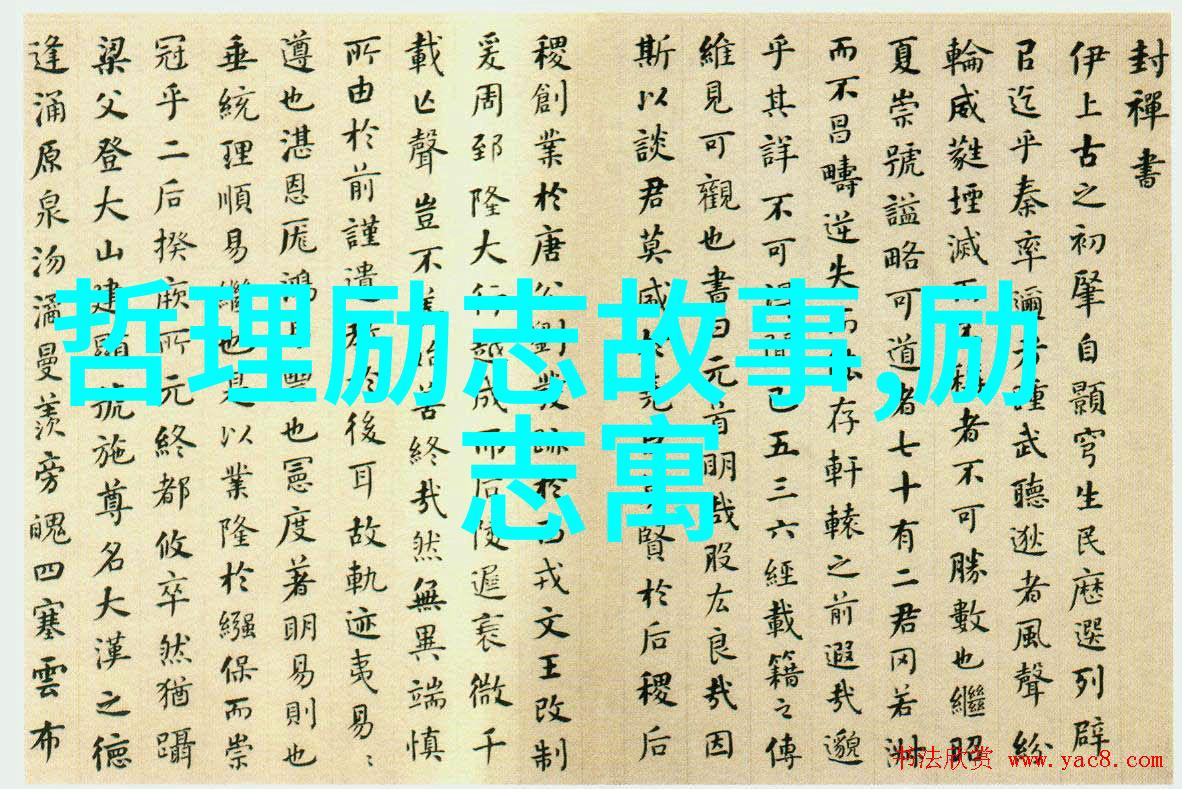 封禪書
伊上古之初肇自顥穹生民歷選列辟
㠯迄乎秦率邇者踵武聽逖者風聲紛
輪威蕤堙滅而不稱者不可勝數也繼昭
夏崇號謚略可道者七十有二君罔若淑
而不昌疇逆失而能存軒轅之前遐哉邈
乎其詳不可得聞已五三六經載籍之傳
維見可觀也書曰元首明哉股肱良哉因
斯以談君莫盛於堯臣賢於后稷后
稷創業於唐公劉發跡於西戎文王改制
爰周郅隆大行越成而后陵遲衰微千
載亡聲豈不善始善終哉然無異端慎
所由於前謹遺教於後耳故軌迹夷易〻
遵也湛恩厖鴻易豐也憲度著明易則也
垂統理順易繼也是以業隆於繈保而崇
冠乎二后揆厥所元終都攸卒然猶躡
梁父登大山建顯號施尊名大漢之德
逢涌原泉沕潏曼羨旁魄四塞雲布
哲理励志故事,励
志寓
书法欣赏 www.yac8.com